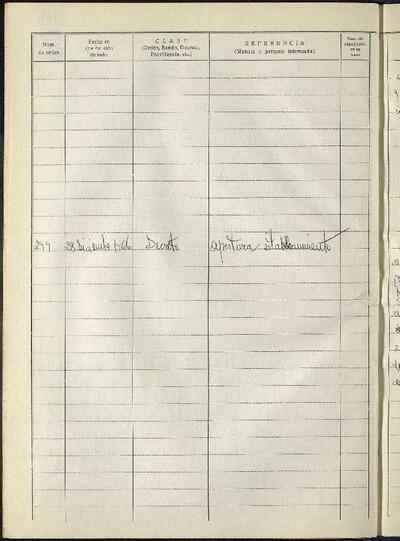 Núm. de orden
Fecha en que ha sido dictado
CLASE
(Orden, Bando, Decreto, Providencia, etc.)
REFERENCIA
(Materia o persona interesada)
Núm. del expediente, en su caso
299 28 Diciembre 1966 Decreto apertura establecimiento